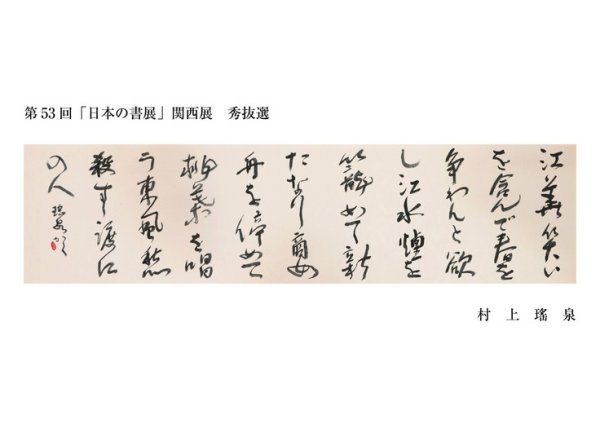 第53回「日本の書展」関西展　秀抜選
江華笑い
を含んで春を
争わんと欲
し江水情を
籠めて新
たなり商女
舟を停めて
柳枝を唱
う東風愁
殺す渡江
の人 瑤泉
村上瑤泉